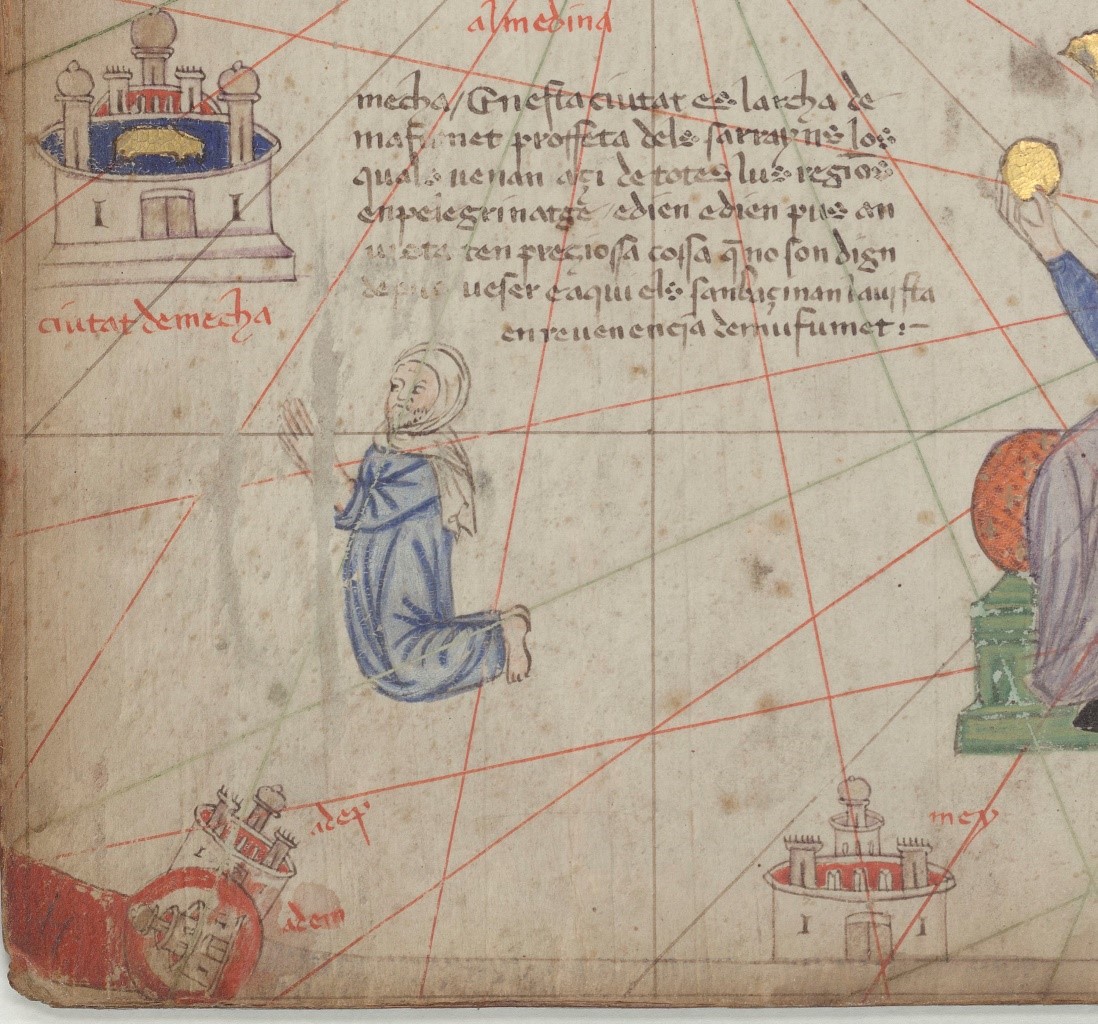 almedina
mecha / En esta ciutat es larcha de
mafumet proffeta dels sarrayns los
quals venan açi de totes lus regions
en pelegrinatge edien edien pus an
ten preçiosa cossa q̄ no son dign
veser e aqui els
en revenencia de mufumet :—
ciutat de mecha
adep
adem